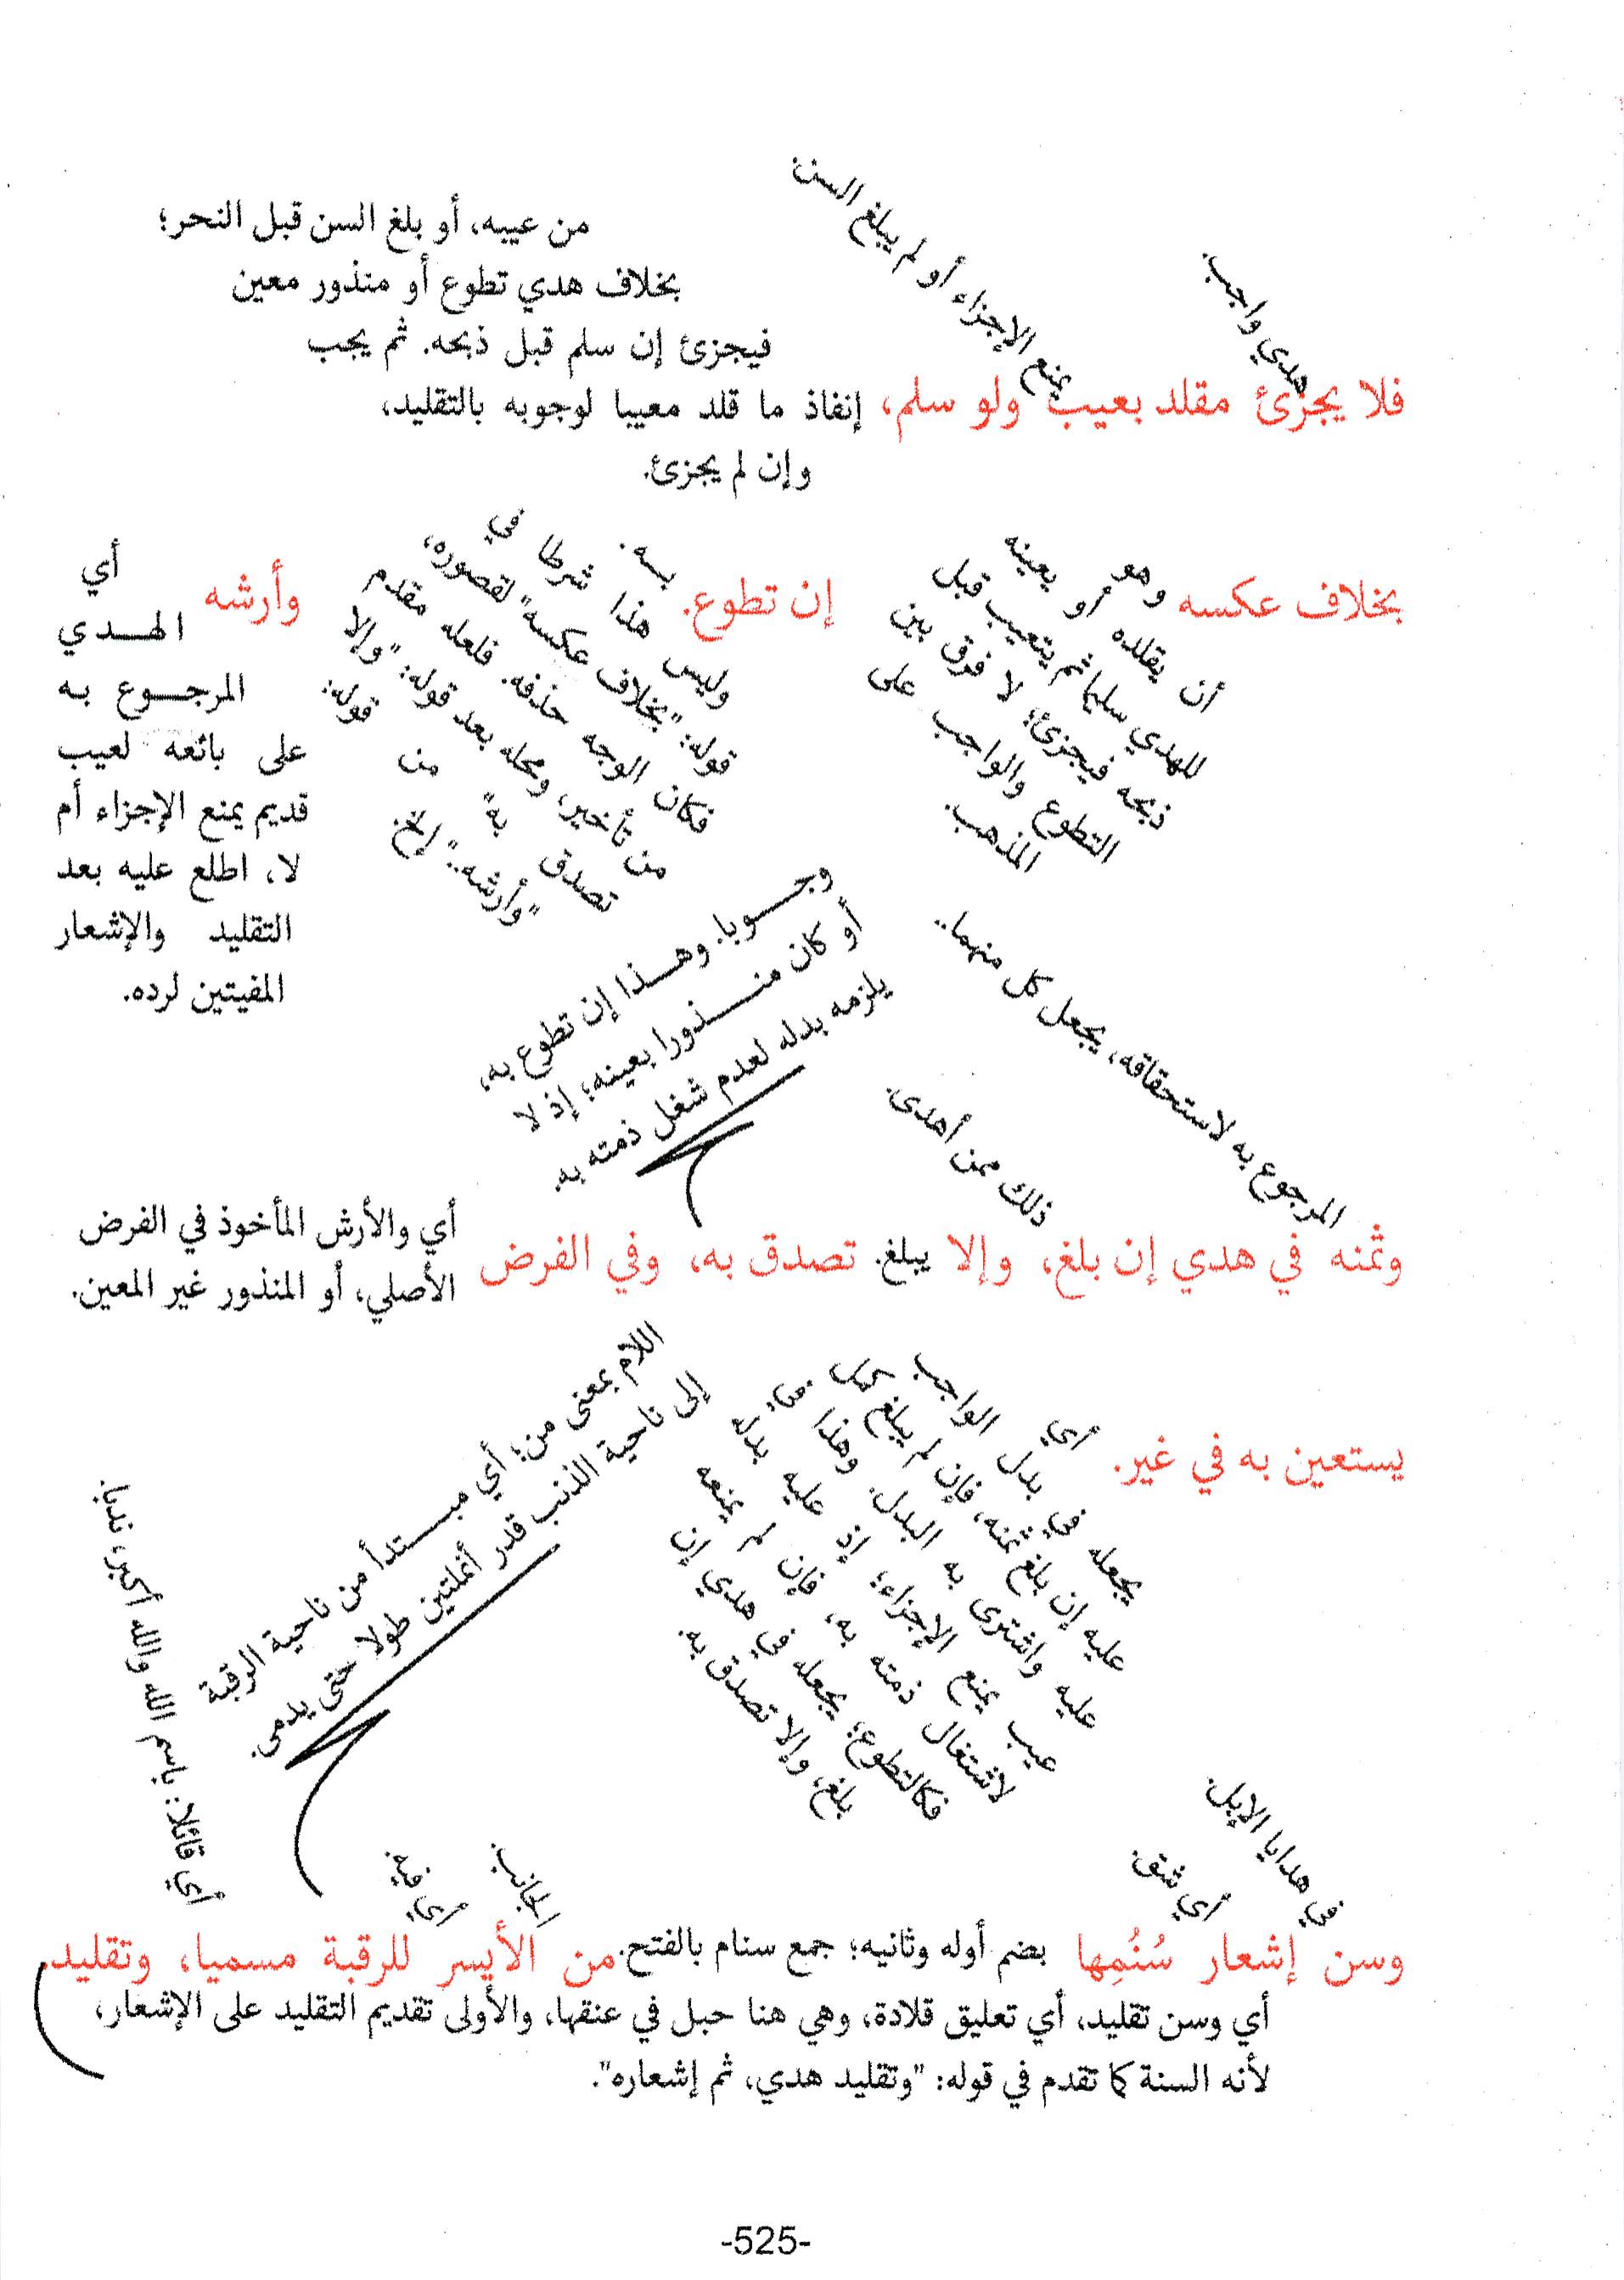 هدي واجب.
يمنع الإجزاء أو لم يبلغ السن.
من عيبه، أو بلغ السن قبل النحر؛
بخلاف هدي تطوع أو منذور معين
فيجزئ إن سلم قبل ذبحه. ثم يجب
فلا يجزئ مقلد بعيب ولو سلم، إنفاذ ما قلد معيبا لوجوبه بالتقليد،
وإن لم يجزئ.
بخلاف عكسه
وهو
أن يقلده أو يعينه
للهدي سليما ثم يتعيب قبل
ذبحه فيجزئ؛ لا فرق بين
التطوع والواجب على
المذهب.
إن تطوع.
بسه.
وليس هذا شرطا في
قوله: "بخلاف عكسه" لقصوره،
فكان الوجه حذفه. فلعله مقدم
من تأخير، ومحله بعد قوله: "وإلا
تصدق به" من قوله:
"وأرشه.." إلخ.
وأرشه
أي
الهدي
المرجوع به
على بائعه لعيب
قديم يمنع الإجزاء أم
لا، اطلع عليه بعد
التقليد والإشعار
المفيتين لرده.
المرجوع به لاستحقاقه، يجعل كل منهما..
ذلك ممن أهدى.
وجوبا. وهذا إن تطوع به،
أو كان منذورا بعينه؛ إذ لا
يلزمه بدله لعدم شغل ذمته به.
وثمنه في هدي إن بلغ، وإلا يبلغ. تصدق به، وفي الفرض
أي والأرش المأخوذ في الفرض
الأصلي، أو المنذور غير المعين.
يستعين به في غير.
أي
يجعله في بدل الواجب
عليه إن بلغ ثمنه، فإن لم يبلغ كمل
عليه واشترى به البدل. وهذا في
عيب يمنع الإجزاء؛ إذ عليه بدله
لاشتغال ذمته به، فإن لم يمنعه
فكالتطوع؛ يجعله في هدي إن
بلغ، وإلا تصدق به.
اللام بمعنى من؛ أي مبتدأ من ناحية الرقبة
إلى ناحية الذنب قدر أنملتين طولا حتى يدمى.
أي قائلا: باسم الله والله أكبر، ندبا.
في هدايا الإبل.
أي شق.
الجانب.
أي فيه.
وسن إشعار سُنُمِها بضم أوله وثانيه؛ جمع سنام بالفتح. من الأيسر للرقبة مسميا، وتقليد.
أي وسن تقليد، أي تعليق قلادة، وهي هنا حبل في عنقها، والأولى تقديم التقليد على الإشعار،
لأنه السنة كما تقدم في قوله: "وتقليد هدي، ثم إشعاره".
-525-